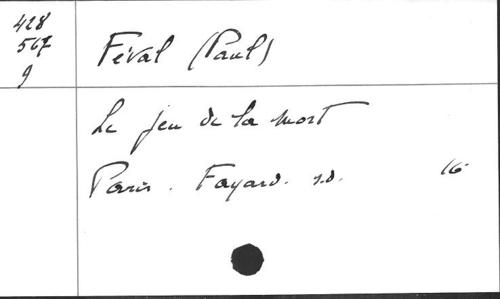 428
567
g
Féval (Paul)
Le jeu de la mort
Paris. Fayard. s.d. 16